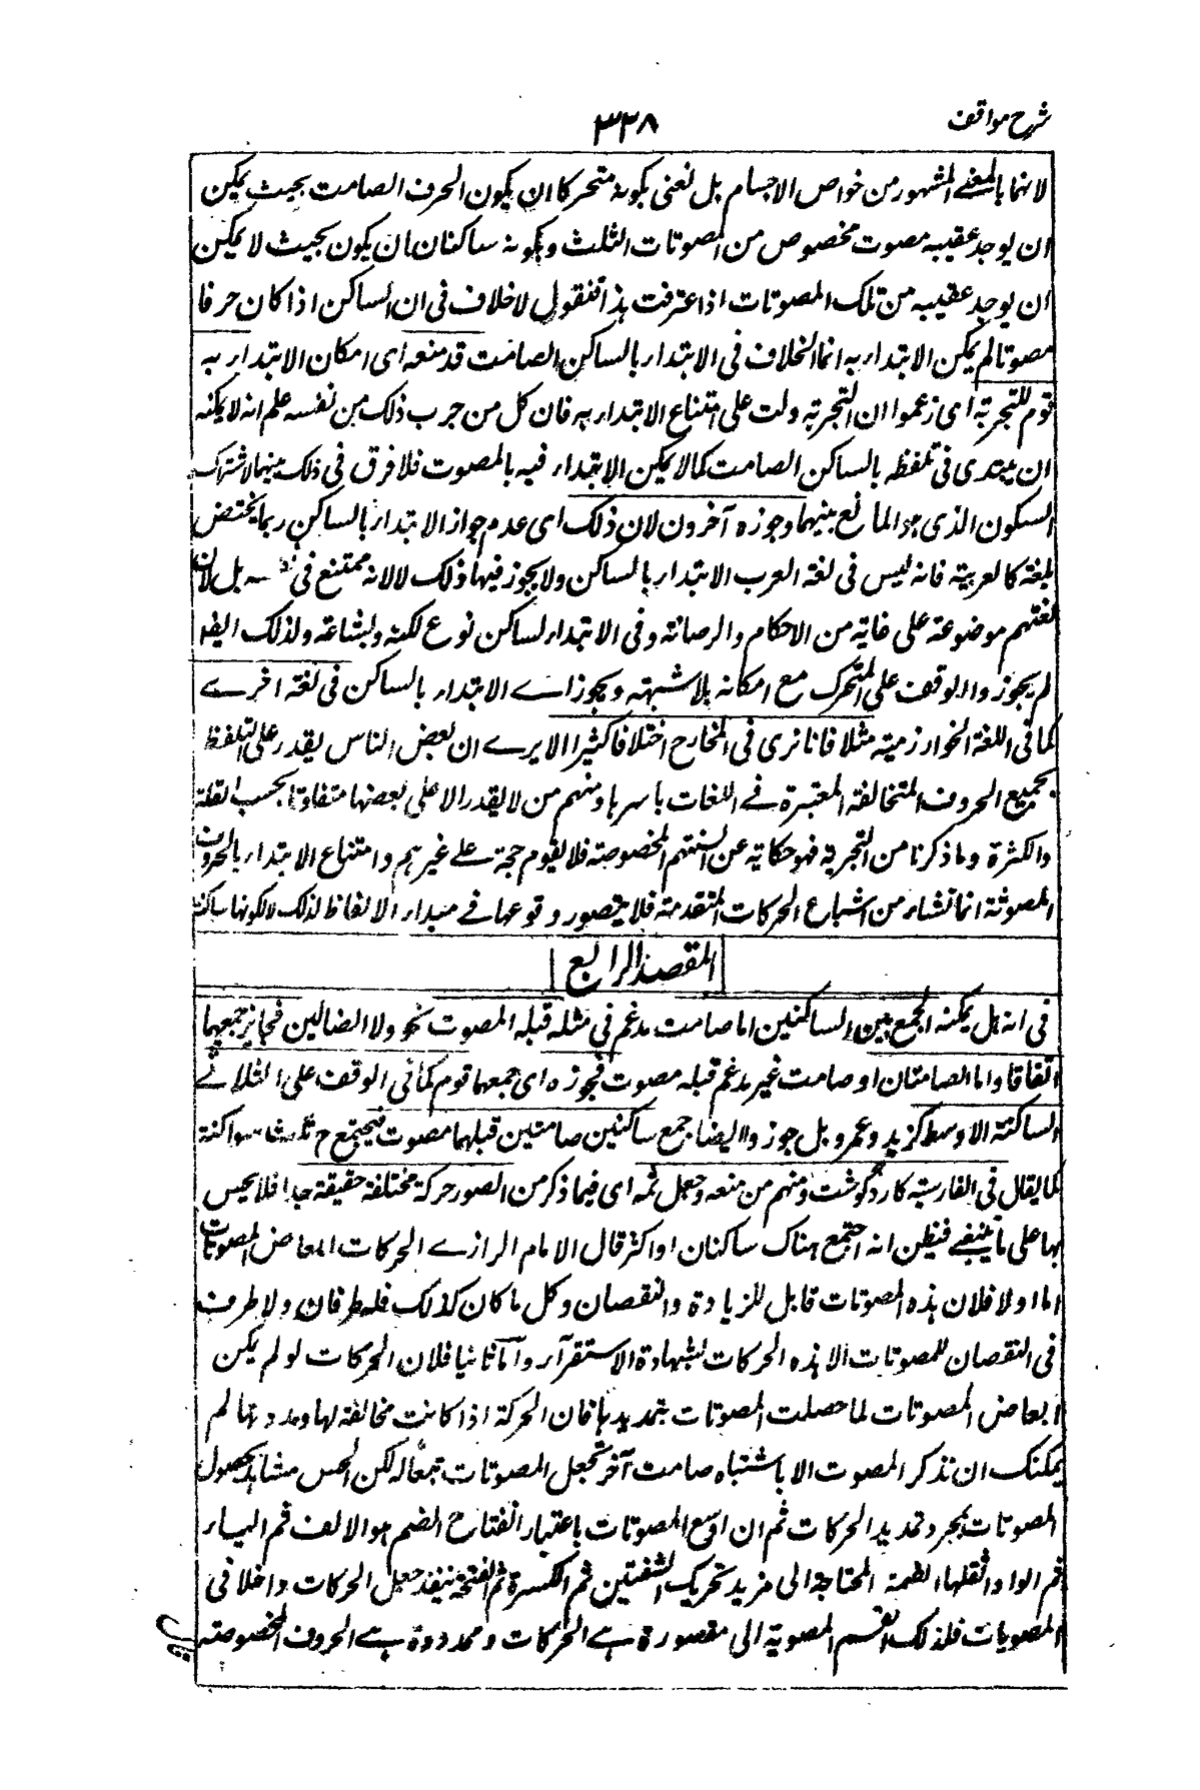 شرح مواقف
٣٣٨
لانهما بالمعنى المشهور من خواص الاجسام بل نعنى بكونه متحركا ان يكون الحرف الصامت بحيث يمكن
ان يوجد عقيبه مصوت مخصوص من المصوتات الثلث وبكونه ساكنا ان يكون بحيث لا يمكن
ان يوجد عقيبه من تلك المصوتات اذا عرفت هذا فنقول لا خلاف فى ان الساكن اذا كان حرفا
مصوتا لم يمكن الابتداء به انما الخلاف فى الابتداء بالساكن الصامت قد منعه اى امكان الابتداء به
قوم للتجربة اى زعموا ان التجربة دلت على امتناع الابتداء به فان كل من جرب ذلك من نفسه علم انه لا يمكنه
ان يبتدى فى تلفظه بالساكن الصامت كما لا يمكن الابتداء فيه بالمصوت فلا فرق فى ذلك بينهما لاشتراك
السكون الذى هو المانع بينهما وجوزه آخرون لان ذلك اى عدم جواز الابتداء بالساكن ربما يختص
بلغة كالعربية فانه ليس فى لغة العرب الابتداء بالساكن ولا يجوز فيها ذلك لا لانه ممتنع فى بل لان
لغتهم موضوعة على غاية من الاحكام والرصانة وفى الابتداء لساكن نوع لكنة وبشاعة ولذلك ايضا
لم يجوزوا الوقف على المتحرك مع امكانه بلا شبهة ويجوز اے الابتداء بالساكن فى لغة اخرے
كما فى اللغة الخوارزمية مثلا فانا نرى فى المخارج اختلافا كثيرا الا يرے ان بعض الناس يقدر على التلفظ
بجميع الحروف المتخالفة المعتبرة فے اللغات باسرها ومنهم من لا يقدر الا على بعضها متفاوتا بحسب القلة
والكثرة وما ذكرنا من التجربة فهو حكاية عن السنتهم المخصوصة فلا يقوم حجة علے غيرهم وامتناع الابتداء بالحروف
المصوتة انما نشاء من اشباع الحركات المتقدمة فلا يتصور وقوعها فے مبداء الالفاظ لذلك لا لكونها ساكنة
المقصد الرابع
فى انه هل يمكنه الجمع بين الساكنين اما صامت مدغم فى مثله قبله المصوت نحو ولا الضالين فجايز جمعهما
اتفاقا واما الصامتان او صامت غير مدغم قبله مصوت فجوزه اى جمعهما قوم كما فى الوقف على الثلاثے
الساكنة الاوسط كزيد وعمرو بل جوزوا ايضا جمع ساكنين صامتين قبلهما مصوت فيجتمع ح ثلث سواكنة
كما يقال فى الفارسية كارد گوشت ومنهم من منعه وجعل ثمه اى فيما ذكر من الصور حركة مختلفة حقيقة جدا فلا يحس
بها على ما ينبغے فيظن انه اجتمع هناك ساكنان او اكثر قال الامام الرازے الحركات ابعاض المصوتات
اما اولا فلان هذه المصوتات قابل للزيادة والنقصان وكل ما كان كذلك فله طرفان ولا طرف
فى النقصان للمصوتات الا هذه الحركات بشهادة الاستقرآء وآما ثانيا فلان الحركات لو لم يكن
ابعاض المصوتات لما حصلت المصوتات بتمديدها فان الحركة اذا كانت مخالفة لها ومددتها لم
يمكنك ان تذكر المصوت الا باشتباه صامت آخر تجعل المصوتات تبعا له لكن الحس مشاهد بحصول
المصوتات بمجرد تمديد الحركات ثم ان اوسع المصوتات باعتبار انفتاح الضم هو الالف ثم الياء
ثم الواو واثقلها الضمة المحتاجة الى مزيد تحريك الشفتين ثم الكسرة ثم الفتحة جعل الحركات داخلا فى
المصوتات فلذلك انقسم المصوتة الى مقصورة هے الحركات وممدودة هے الحروف المخصوصة